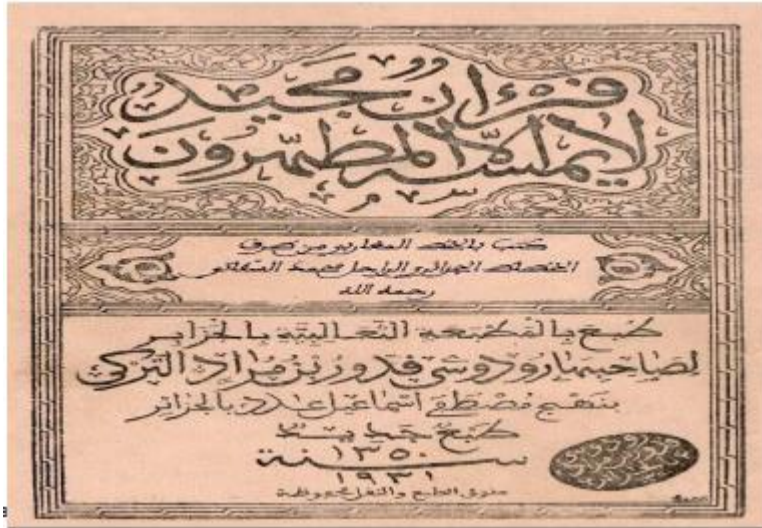 قرءان مجيد
لا يمسه إلا المطهرون
كتب بالخط المغاربي من طرف
الخطاط الجزائري الراحل محمد السفاطي
رحمه الله
طبع بالمطبعة الثعالبية بالجزاير
لصاحبها رودوسي قدور بن مراد التركي
بنهج مصطفى اسماعيل عدد بالجزائر
طبع جديد
١٣٥٠
سنة
١٩٣١
حقوق الطبع والنقل محفوظة